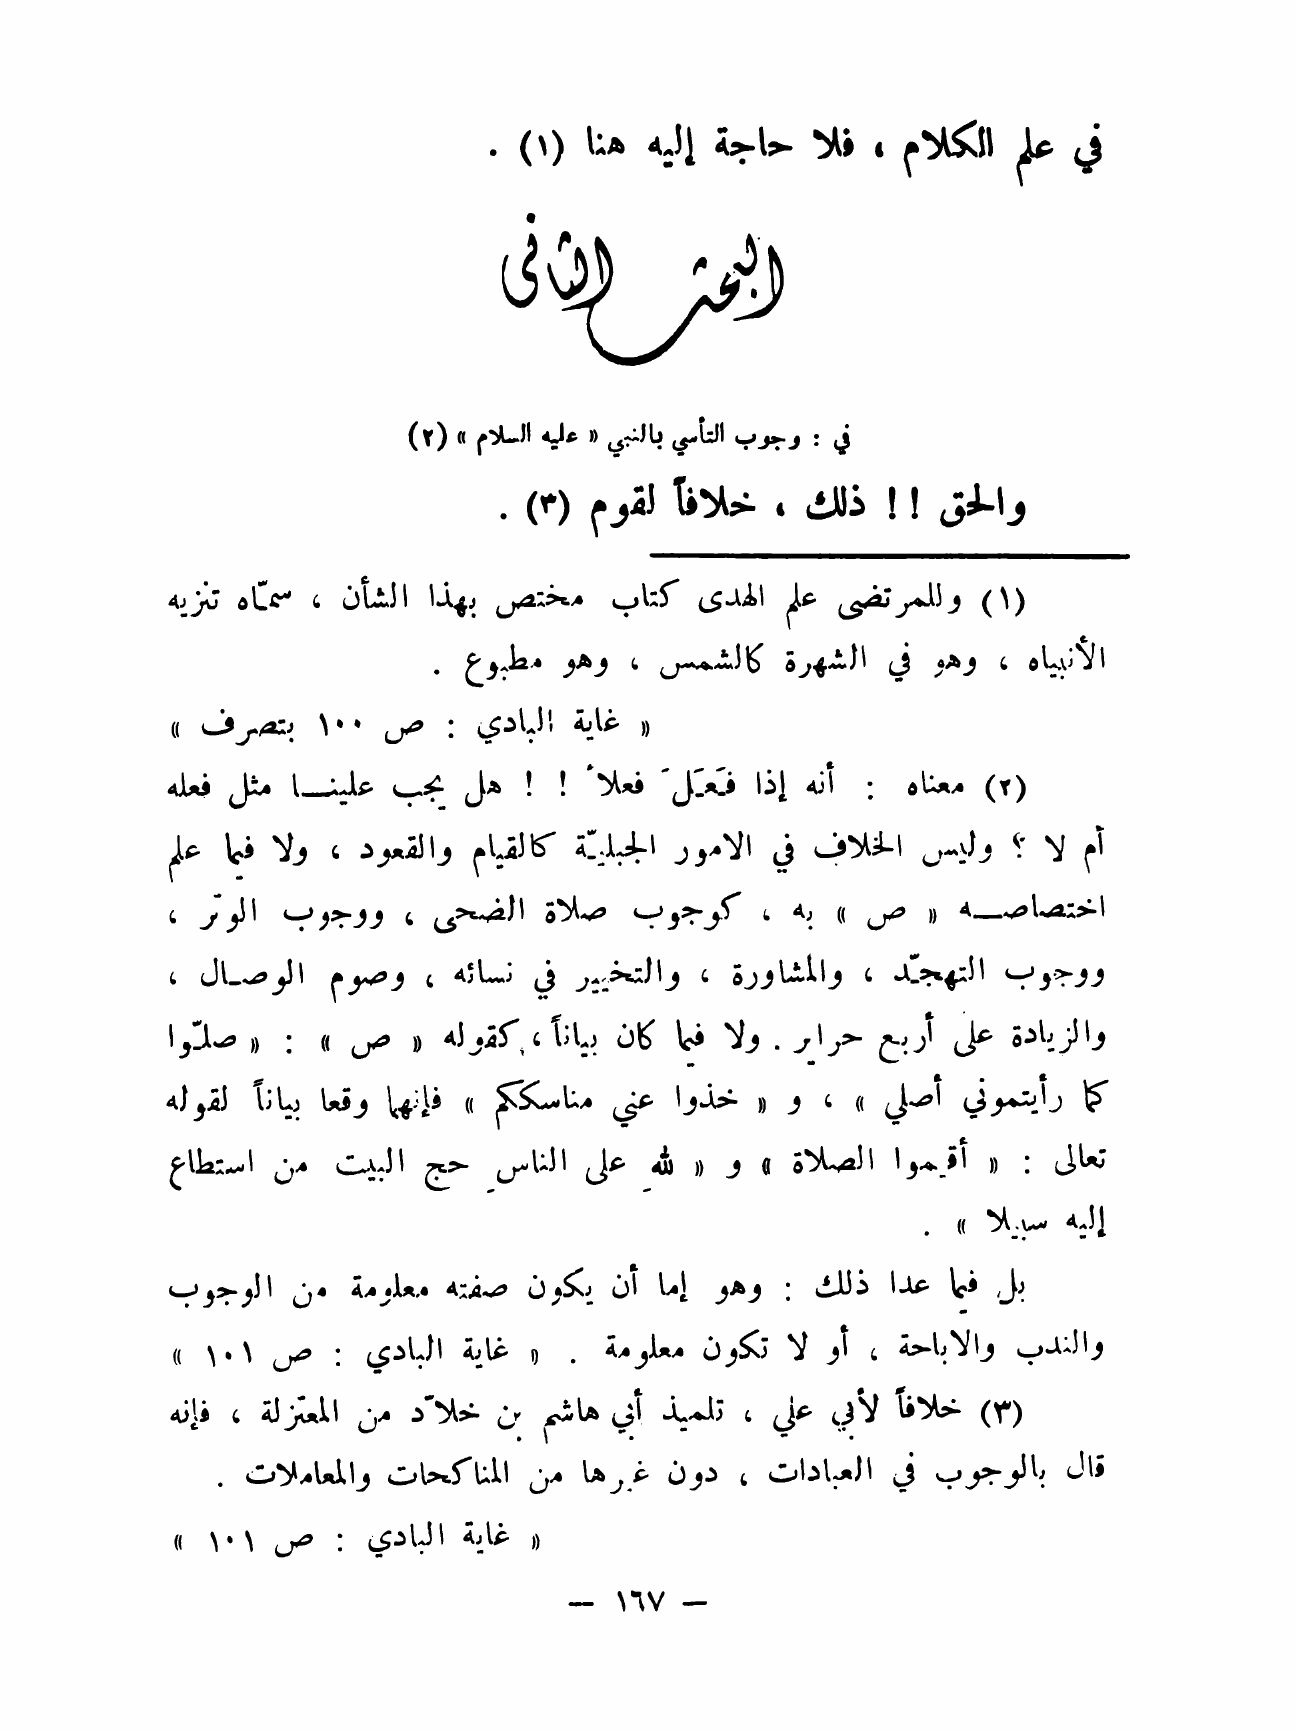 في علم الكلام ، فلا حاجة إليه هنا (١) .
البحث الثانى
في : وجوب التأسي بالنبي « عليه السلام » (٢)
والحق !! ذلك ، خلافاً لقوم (٣) .
(١) وللمرتضى علم الهدى كتاب مختص بهذا الشأن ، سمّاه تنزيه
الأنبياه ، وهو في الشهرة كالشمس ، وهو مطبوع .
« غاية البادي : ص ١٠٠ بتصرف »
(٢) معناه : أنه إذا فَعَلَ فعلاً ! ! هل يجب علينــا مثل فعله
أم لا ؟ وليس الخلاف في الامور الجبليّة كالقيام والقعود ، ولا فيما علم
اختصاصــه « ص » به ، كوجوب صلاة الضحى ، ووجوب الوتر ،
ووجوب التهجّد ، والمشاورة ، والتخيير في نسائه ، وصوم الوصـال ،
والزيادة على أربع حراير . ولا فيما كان بياناً ، كقوله « ص » : « صلّوا
كما رأيتموني أصلي » ، و « خذوا عني مناسككم » فإنهما وقعا بياناً لقوله
تعالى : « أقيموا الصلاة » و « للهِ على الناسِ حج البيت من استطاع
إليه سبيلا » .
بل فيما عدا ذلك : وهو إما أن يكون صفته معلومة من الوجوب
والندب والاباحة ، أو لا تكون معلومة . « غاية البادي : ص ١٠١ »
(٣) خلافاً لأبي علي ، تلميذ أبي هاشم بن خلاّد من المعتزلة ، فإنه
قال بالوجوب في العبادات ، دون غيرها من المناكحات والمعاملات .
« غاية البادي : ص ١٠١ »
— ١٦٧ —